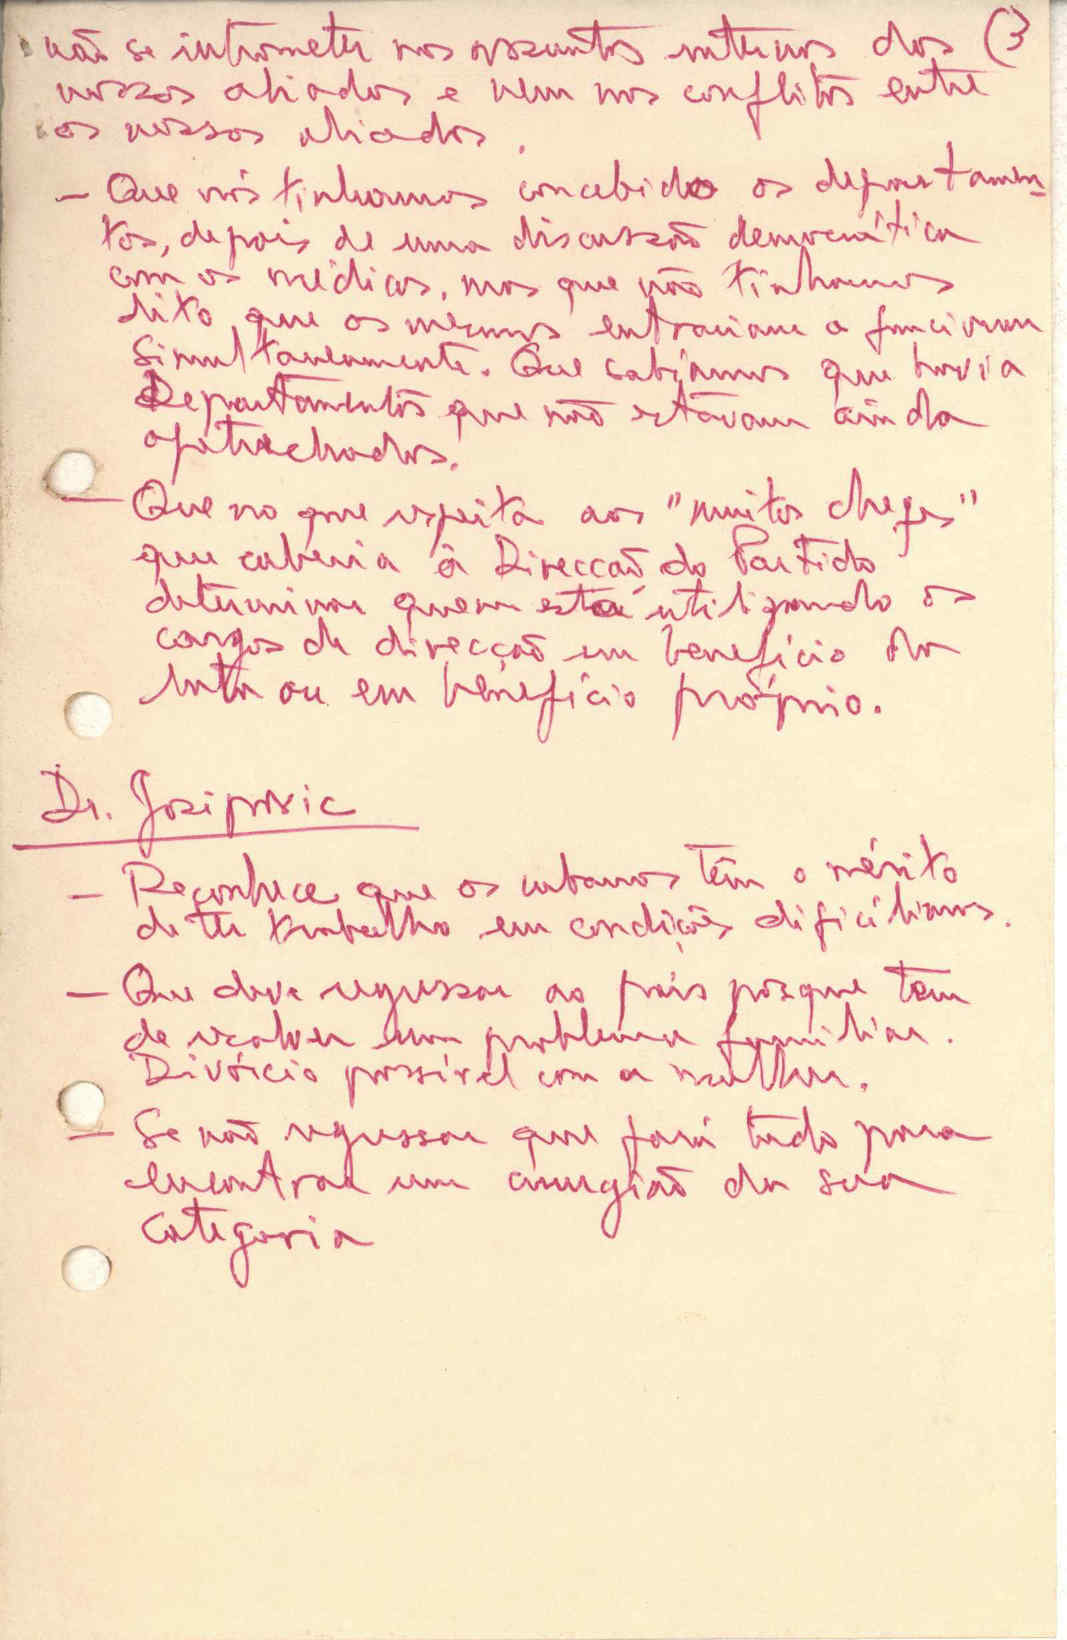 não se intrometer nos assuntos internos dos (3
nossos aliados e nem nos conflitos entre
os nossos aliados.
— Que nós tinhamos concebido os departamen-
tos, depois de uma discussão democrática
com os médicos, mas que não tinhamos
dito que os mesmos entrariam a funcionar
simultaneamente. Que sabíamos que havia
Departamentos que não estavam ainda
apetrechados.
— Que no que respeita aos "muitos chefes"
que caberia à Direcção do Partido
determinar quem está utilizando os
cargos de direcção em benefício da
luta ou em benefício próprio.
Dr. Josipovic
— Reconhece que os cubanos têm o mérito
de ter trabalho em condições dificílimas.
— Que deve regressar ao país porque tem
de resolver um problema familiar.
Divórcio possível com a mulher.
— Se não regressar que fará tudo para
encontrar um cirurgião da sua
categoria